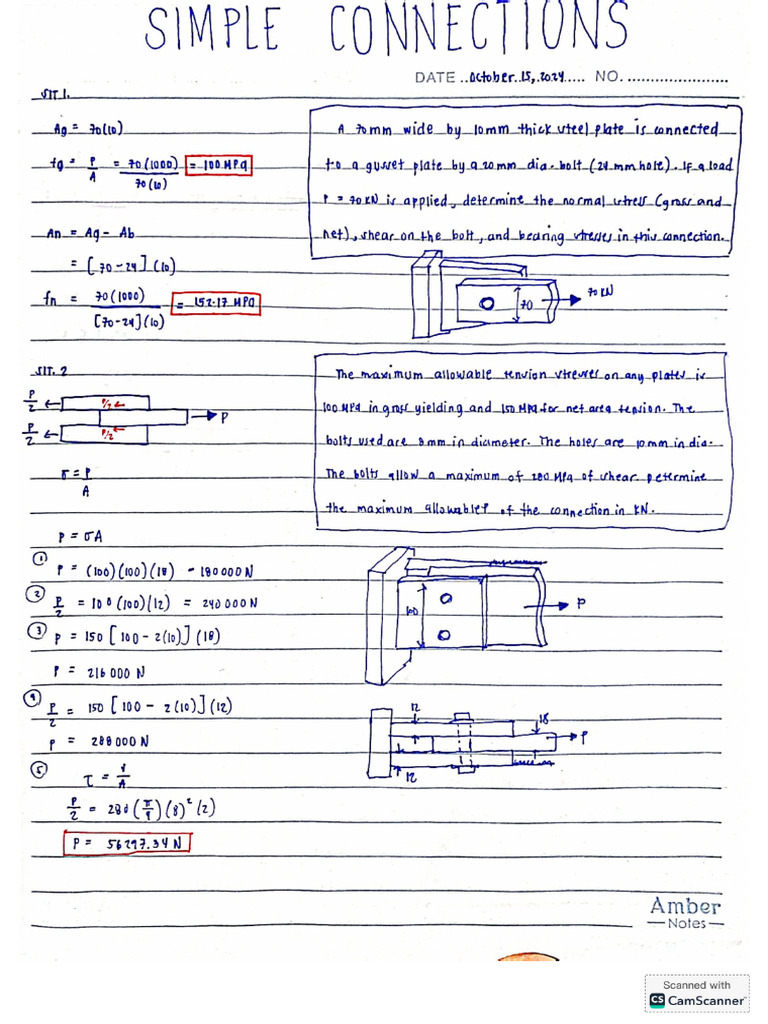 SIMPLE CONNECTIONS
DATE ..October.15,.2024..... NO. .......................
SIT 1.
Ag = 70(10)
fg = P/A = 70(1000)/70(10) = 100 MPa
An = Ag - Ab
= [70-24](10)
fn = 70(1000)/[70-24](10) = 152.17 MPa
A 70mm wide by 10mm thick steel plate is connected
to a gusset plate by a 20mm dia. bolt (24mm hole). If a load
P = 70 KN is applied, determine the normal stress (gross and
net), shear on the bolt, and bearing stresses in this connection.
70
70 KN
SIT. 2
P/2
P/2
P/2
P/2
P
σ = P/A
P = σA
① P = (100)(100)(18) = 180000N
② P/2 = 100(100)(12) = 240 000 N
③ P = 150[100-2(10)](18)
P = 216 000 N
④ P/2 = 150[100 - 2(10)](12)
P = 288000 N
⑤ τ = V/A
P/2 = 280(π/4)(8)²(2)
P = 56297.34 N
The maximum allowable tension stresses on any plates is
100 MPa in gross yielding and 150 MPa for net area tension. The
bolts used are 8mm in diameter. The holes are 10mm in dia.
The bolts allow a maximum of 280 MPa of shear. Determine
the maximum allowable P of the connection in KN.
100
P
12
18
P
12
Amber
—Notes—
Scanned with
CS CamScanner